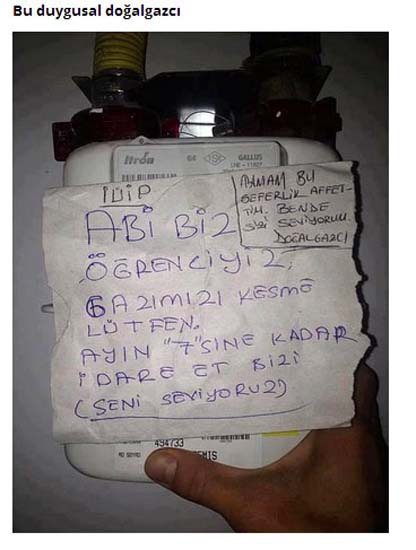 Bu duygusal doğalgazcı
Itrón G4 GALLUS
İDİP
ABİ BİZ
ÖĞRENCİYİZ,
GAZIMIZI KESME
LÜTFEN.
AYIN "7"SİNE KADAR
İDARE ET BİZİ
(SENİ SEVİYORUZ)
BU
SEFERLİK AFFET-
TİM. BENDE
SİZİ SEVİYORUM.
DOĞALGAZCI
494733